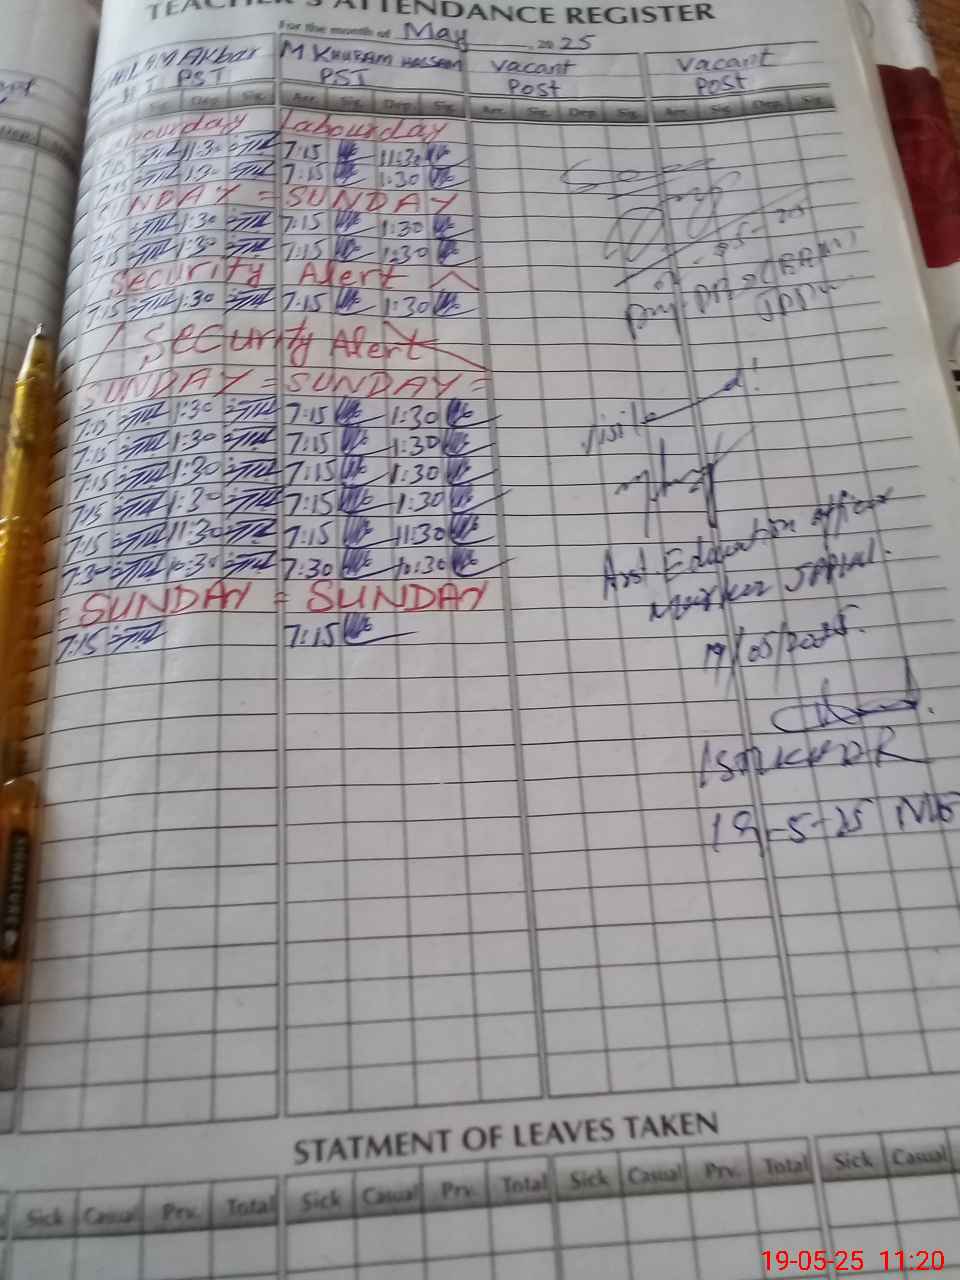 TEACHER'S ATTENDANCE REGISTER
For the month of May 2025
Akbar M KHURAM HASSAM vacant vacant
PST PST Post Post
Sig. Dep. Sig. Arr. Sig. Dep. Sig. Arr. Sig. Dep. Sig. Arr. Sig. Dep. Sig.
Labourday
7:15 11:30 7:15 11:30
7:15 1:30 7:15 1:30
SUNDAY = SUNDAY
7:15 1:30 7:15 1:30
7:15 1:30 7:15 1:30
Security Alert
7:15 1:30 7:15 1:30
Security Alert
SUNDAY = SUNDAY =
7:15 1:30 7:15 1:30
7:15 1:30 7:15 1:30
7:15 1:30 7:15 1:30
7:15 1:30 7:15 1:30
7:15 11:30 7:15 11:30
7:30 10:30 7:30 10:30
= SUNDAY = SUNDAY
7:15 7:15
Visited!
Asst Education officer
19/05/2025.
19-5-25
STATMENT OF LEAVES TAKEN
Sick Casual Prv. Total Sick Casual Prv. Total Sick Casual Prv. Total Sick Casual
SIGNATURE
19-05-25 11:20